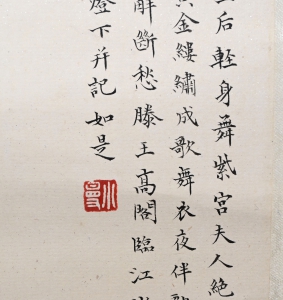 后輕身舞紫宮夫人絶
金縷繡成歌舞衣夜伴
解斷愁滕王高閣臨江
燈下并記如是